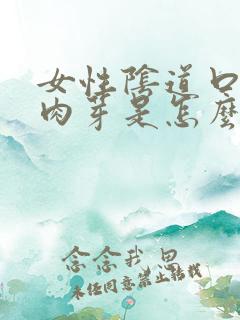 女性陰道口
肉芽是怎麼
念念我思
未经同意禁止转载